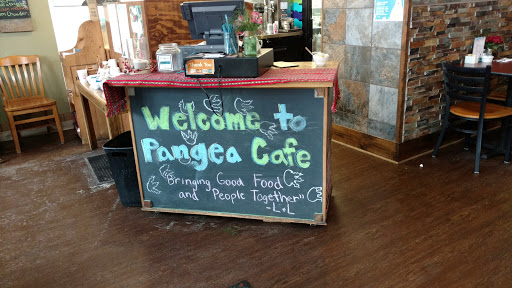 Welcome to
Pangea Cafe
"Bringing Good Food
and People Together"
-L+L